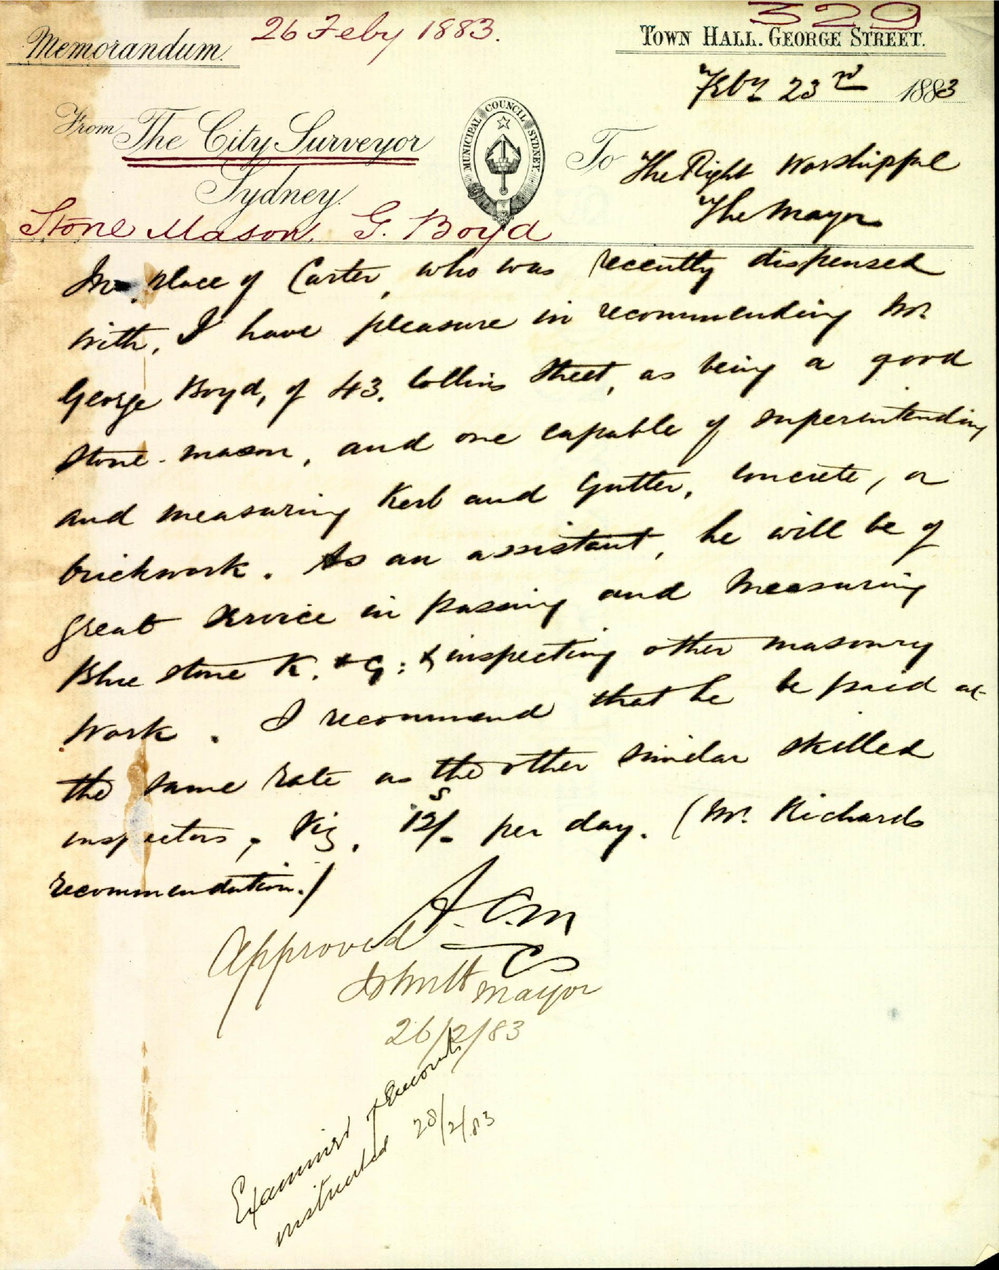 329
26 Feby 1883.
Memorandum.
TOWN HALL. GEORGE STREET.
Feby 23rd 1883
From The City Surveyor
Sydney.
MUNICIPAL COUNCIL SYDNEY.
To The Right Worshipful
The Mayor
Stone Mason. G. Boyd
In place of Carter, who was recently dispensed
with, I have pleasure in recommending Mr.
George Boyd, of 43. Collins Street, as being a good
stone-mason, and one capable of superintending
and measuring Kerb and Gutter, concrete, or
brickwork. As an assistant, he will be of
great service in passing and measuring
Blue stone K. & G: & inspecting other masonry
work. I recommend that he be paid at
the same rate as the other similar skilled
inspectors, Viz. 12/- per day. (Mr. Richards
recommendation.)
A.C.M
CS
Approved
Mayor
26/2/83
Examiner of Accounts
instructed 28/2/83